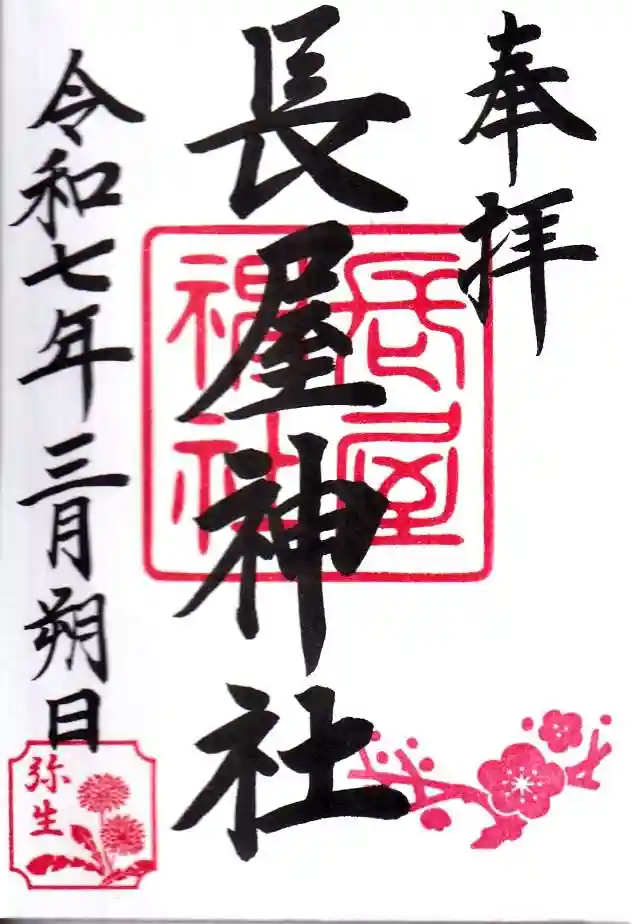 奉拝
長屋神社
長屋
神社
令和七年三月朔日
弥生